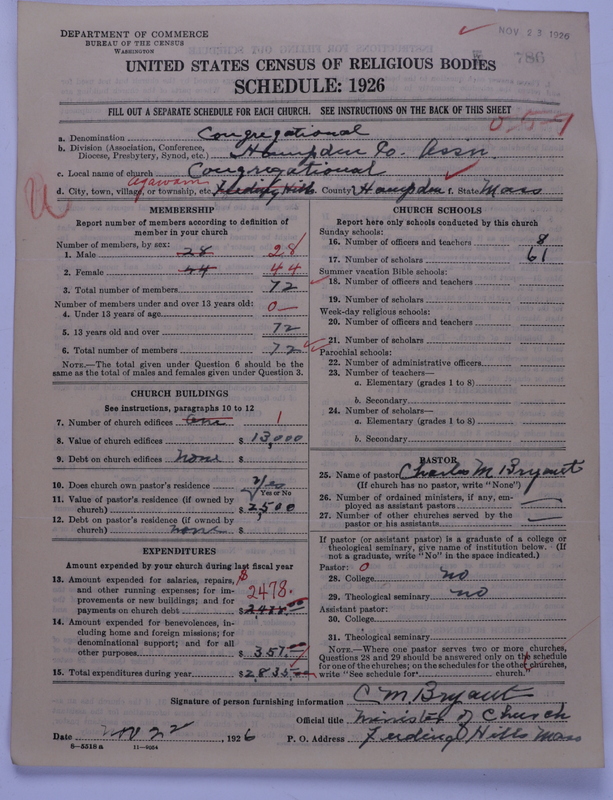 DEPARTMENT OF COMMERCE
BUREAU OF THE CENSUS
WASHINGTON
NOV 23 1926
786
UNITED STATES CENSUS OF RELIGIOUS BODIES
SCHEDULE: 1926
FILL OUT A SEPARATE SCHEDULE FOR EACH CHURCH. SEE INSTRUCTIONS ON THE BACK OF THIS SHEET
a. Denomination Congregational
b. Division (Association, Conference, Diocese, Presbytery, Synod, etc.) Hampden Co. Assn.
c. Local name of church Congregational
Agawam
d. City, town, village, or township, etc. Feeding Hills County Hampden State Mass
MEMBERSHIP
Report number of members according to definition of member in your church
Number of members, by sex:
1. Male 28 28
2. Female 44 44
3. Total number of members 72
Number of members under and over 13 years old:
4. Under 13 years of age 0
5. 13 years old and over 72
6. Total number of members 72
NOTE.—The total given under Question 6 should be same as the total of males and females given under Question 3.
CHURCH BUILDINGS
See instructions, paragraphs 10 to 12
7. Number of church edifices one 1
8. Value of church edifices $ 13,000
9. Debt on church edifices none $
10. Does church own pastor's residence Yes
Yes or No
11. Value of pastor's residence (if owned by church) $ 2,500
12. Debt on pastor's residence (if owned by church) none $
EXPENDITURES
Amount expended by your church during last fiscal year
13. Amount expended for salaries, repairs, and other running expenses; for improvements or new buildings; and for payments on church debt $ 2478.
14. Amount expended for benevolences, including home and foreign missions; for denominational support; and for all other purposes $ 357.00
15. Total expenditures during year $ 2,835.00
CHURCH SCHOOLS
Report here only schools conducted by this church
Sunday schools:
16. Number of officers and teachers 8
17. Number of scholars 61
Summer vacation Bible schools:
18. Number of officers and teachers
19. Number of scholars
Week-day religious schools:
20. Number of officers and teachers
21. Number of scholars
Parochial schools:
22. Number of administrative officers
23. Number of teachers—
a. Elementary (grades 1 to 8)
b. Secondary
24. Number of scholars—
a. Elementary (grades 1 to 8)
b. Secondary
PASTOR
25. Name of pastor Charles M Bryant
(If church has no pastor, write "None")
26. Number of ordained ministers, if any, employed as assistant pastors
27. Number of other churches served by the pastor or his assistants
If pastor (or assistant pastor) is a graduate of a college or theological seminary, give name of institution below. (If not a graduate, write "No" in the space indicated.)
Pastor: 0
28. College no
29. Theological seminary no
Assistant pastor:
30. College
31. Theological seminary
NOTE.—Where one pastor serves two or more churches, Questions 28 and 29 should be answered only on the schedule for one of the churches; on the schedules for the other churches, write "See schedule for church."
Signature of person furnishing information C M Bryant
Official title Minister of Church
Date Nov 22, 1926 P. O. Address Feeding Hills Mass
8—5518 a 11—9054